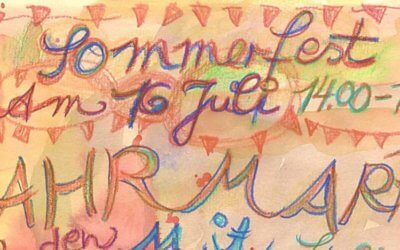 Sommerfest
Am 16 Juli 14.00-
AHRMAR
den